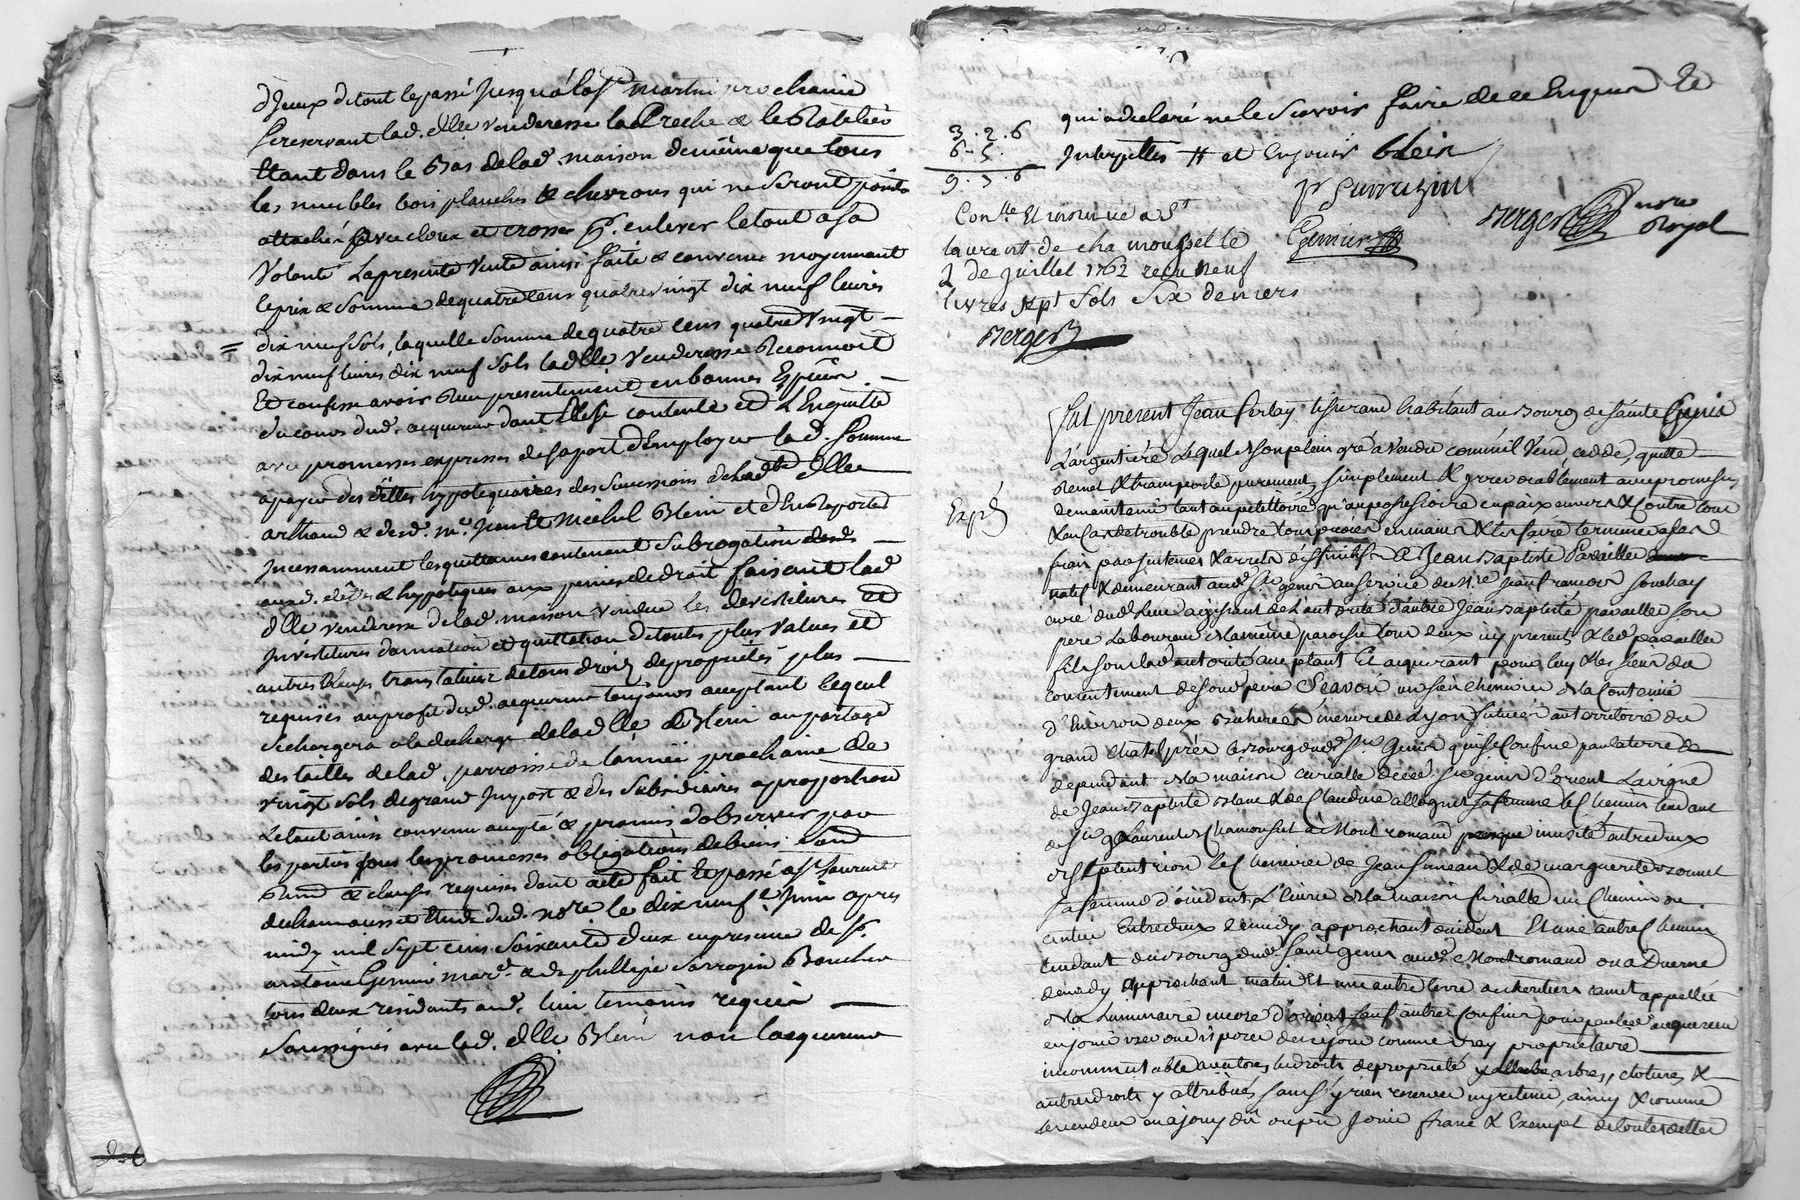 d'Iceux de tout le passé Jusqu'á la st martin prochaine
se reservant lad. dlle venderesse la Creche & le Ratelier
Etant dans le Bas de lad maison de même que tous
les meubles bois planches & chevrons qui ne seront points
attachés avec cloux et crosses pr. enlever le tout a sa
Volonté La presente Vente ainsi faite & convenue moyennant
le prix & somme de quatre cens quatre vingt dix neuf livres
dix neuf sols, laquelle somme de quatre cens quatre vingt
dix neuf livres dix neuf sols lad dlle Venderesse Reconnoit
Et confesse avoir Reçu presentement en bonnes Espèces
du cours dud. acquereur dont Elle se contente et L'Enquitte
avec promesses expresses de sa part d'Employer lad. somme
a payer des dettes hypotequaires des successions de lad dlle
arthaud & dud. me. Jean Michel Blein et d'En Reporter
Incessamment les quittances contenant subrogation
auxd. dettes & hypoteques aux peines de droit faisant lad
dlle venderesse de lad. maison vendue les devestitures et
Investitures donnation et quittation de toutes plus values et
autres clauses translatives de tous droits de proprietés plus
requises au profit dud. acquereur toujours acceptant Lequel
se chargera a la decharge de lad dlle Blein au partage
des tailles de lad. parroisse de l'année prochaine de
vingt sols de grand Impost & des subsidiaires a proportion
Le tout ainsi convenu accepté & promis d'observer par
les parties sous les promesses obligations de biens
& clauses requises dont acte fait Et passé a st Laurent
de chamousset Etude dud. nore le dix neuf Juin apres
midy mil sept cens soixante deux en presence de sr.
antoine Germin mard. & de phillippe Sarrazin Boucher
tous deux residants aud. lieu temoins requis
soussignés avec lad. dlle Blein non lacquereur
qui a declaré ne le sçavoir faire de ce Enquis Et
Interpellés # et Enjouir blein
3 . 2 . 6
6 - 5 .
9 . 7 . 6
pr Sarrazin
Germin
Berger nore Royal
Conlle Et insinué a St
laurent de chamousset le
2 de Juillet 1762 reçu neuf
livres sept sols six deniers
Berger
Expé
Fut present Jean Ferlay tisserand habitant au Bourg de sainte Genis
L'argentiére Lequel de son plein gré a vendu comme il vend, cedde, quitte
remet & transporte purement, simplement & irrevocablement avec promesses
de maintenir tant au petitoire qu'au possessoire en paix envers & contre tous
& en cas de trouble prendre tour en main & les faire terminer a ses
frais par sentences & arrets déffinitifs A Jean Baptiste Pavaillier
natif & demeurant aud. st genis au service du sr Jean francois souchay
curé dud lieu agissant de l'autorité d'autre Jean Baptiste pavaillier son
pere Laboureur de la même paroisse tous deux icy presents & led pavaillier
fils sous lad autorité acceptant Et acquerant pour luy & les siens du
consentement de sond pere Sçavoir un sien chenevier de la contenüe
d'Environ deux bicherées mesure de Lyon situées au territoire du
grand chatel près le bourg dud st Genis qui se confine par la terre
dependant de la maison curialle dud. st genis d'orient La vigne
de Jean Baptiste & de Claudine allognet sa femme le chemin tendant
de st Laurent de Chamousset à Mont romand presque inusité entre deux
de septentrion le Chenevier de Jean & de marguerite Bonnet
sa femme d'occident L'écurie de la maison Curialle un chemin ou
entrée Entre deux de midy approchant occident Et une autre Chemin
tendant du bourg dud. Saint genis aud. Montromand ou a Duerne
de midy approchant matin Et une autre terre appellée
de la Luminaire encore d'orient sauf autres Confins pour par led acquereur
en jouir user ou disposer de ce jour comme vray proprietaire
incommutable avec tous les droits de proprieté arbres, clotures &
autres droits y attribués sans s'y rien reserver ny retenir, ainsy & comme
le vendeur en a jouy dû ou pû Jouir franc & Exempt de toutes dettes